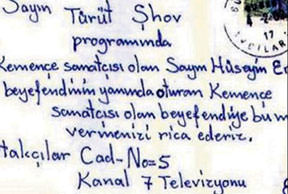 Sayın Türüt Şhov
programında
Kemençe sanatçısı olan Sayın Hüseyin
beyefendinin yanında oturan Kemençe
sanatçısı olan beyefendiye bu
vermenizi rica ederiz.
Cad-No=5
Kanal 7 Televizyonu
17